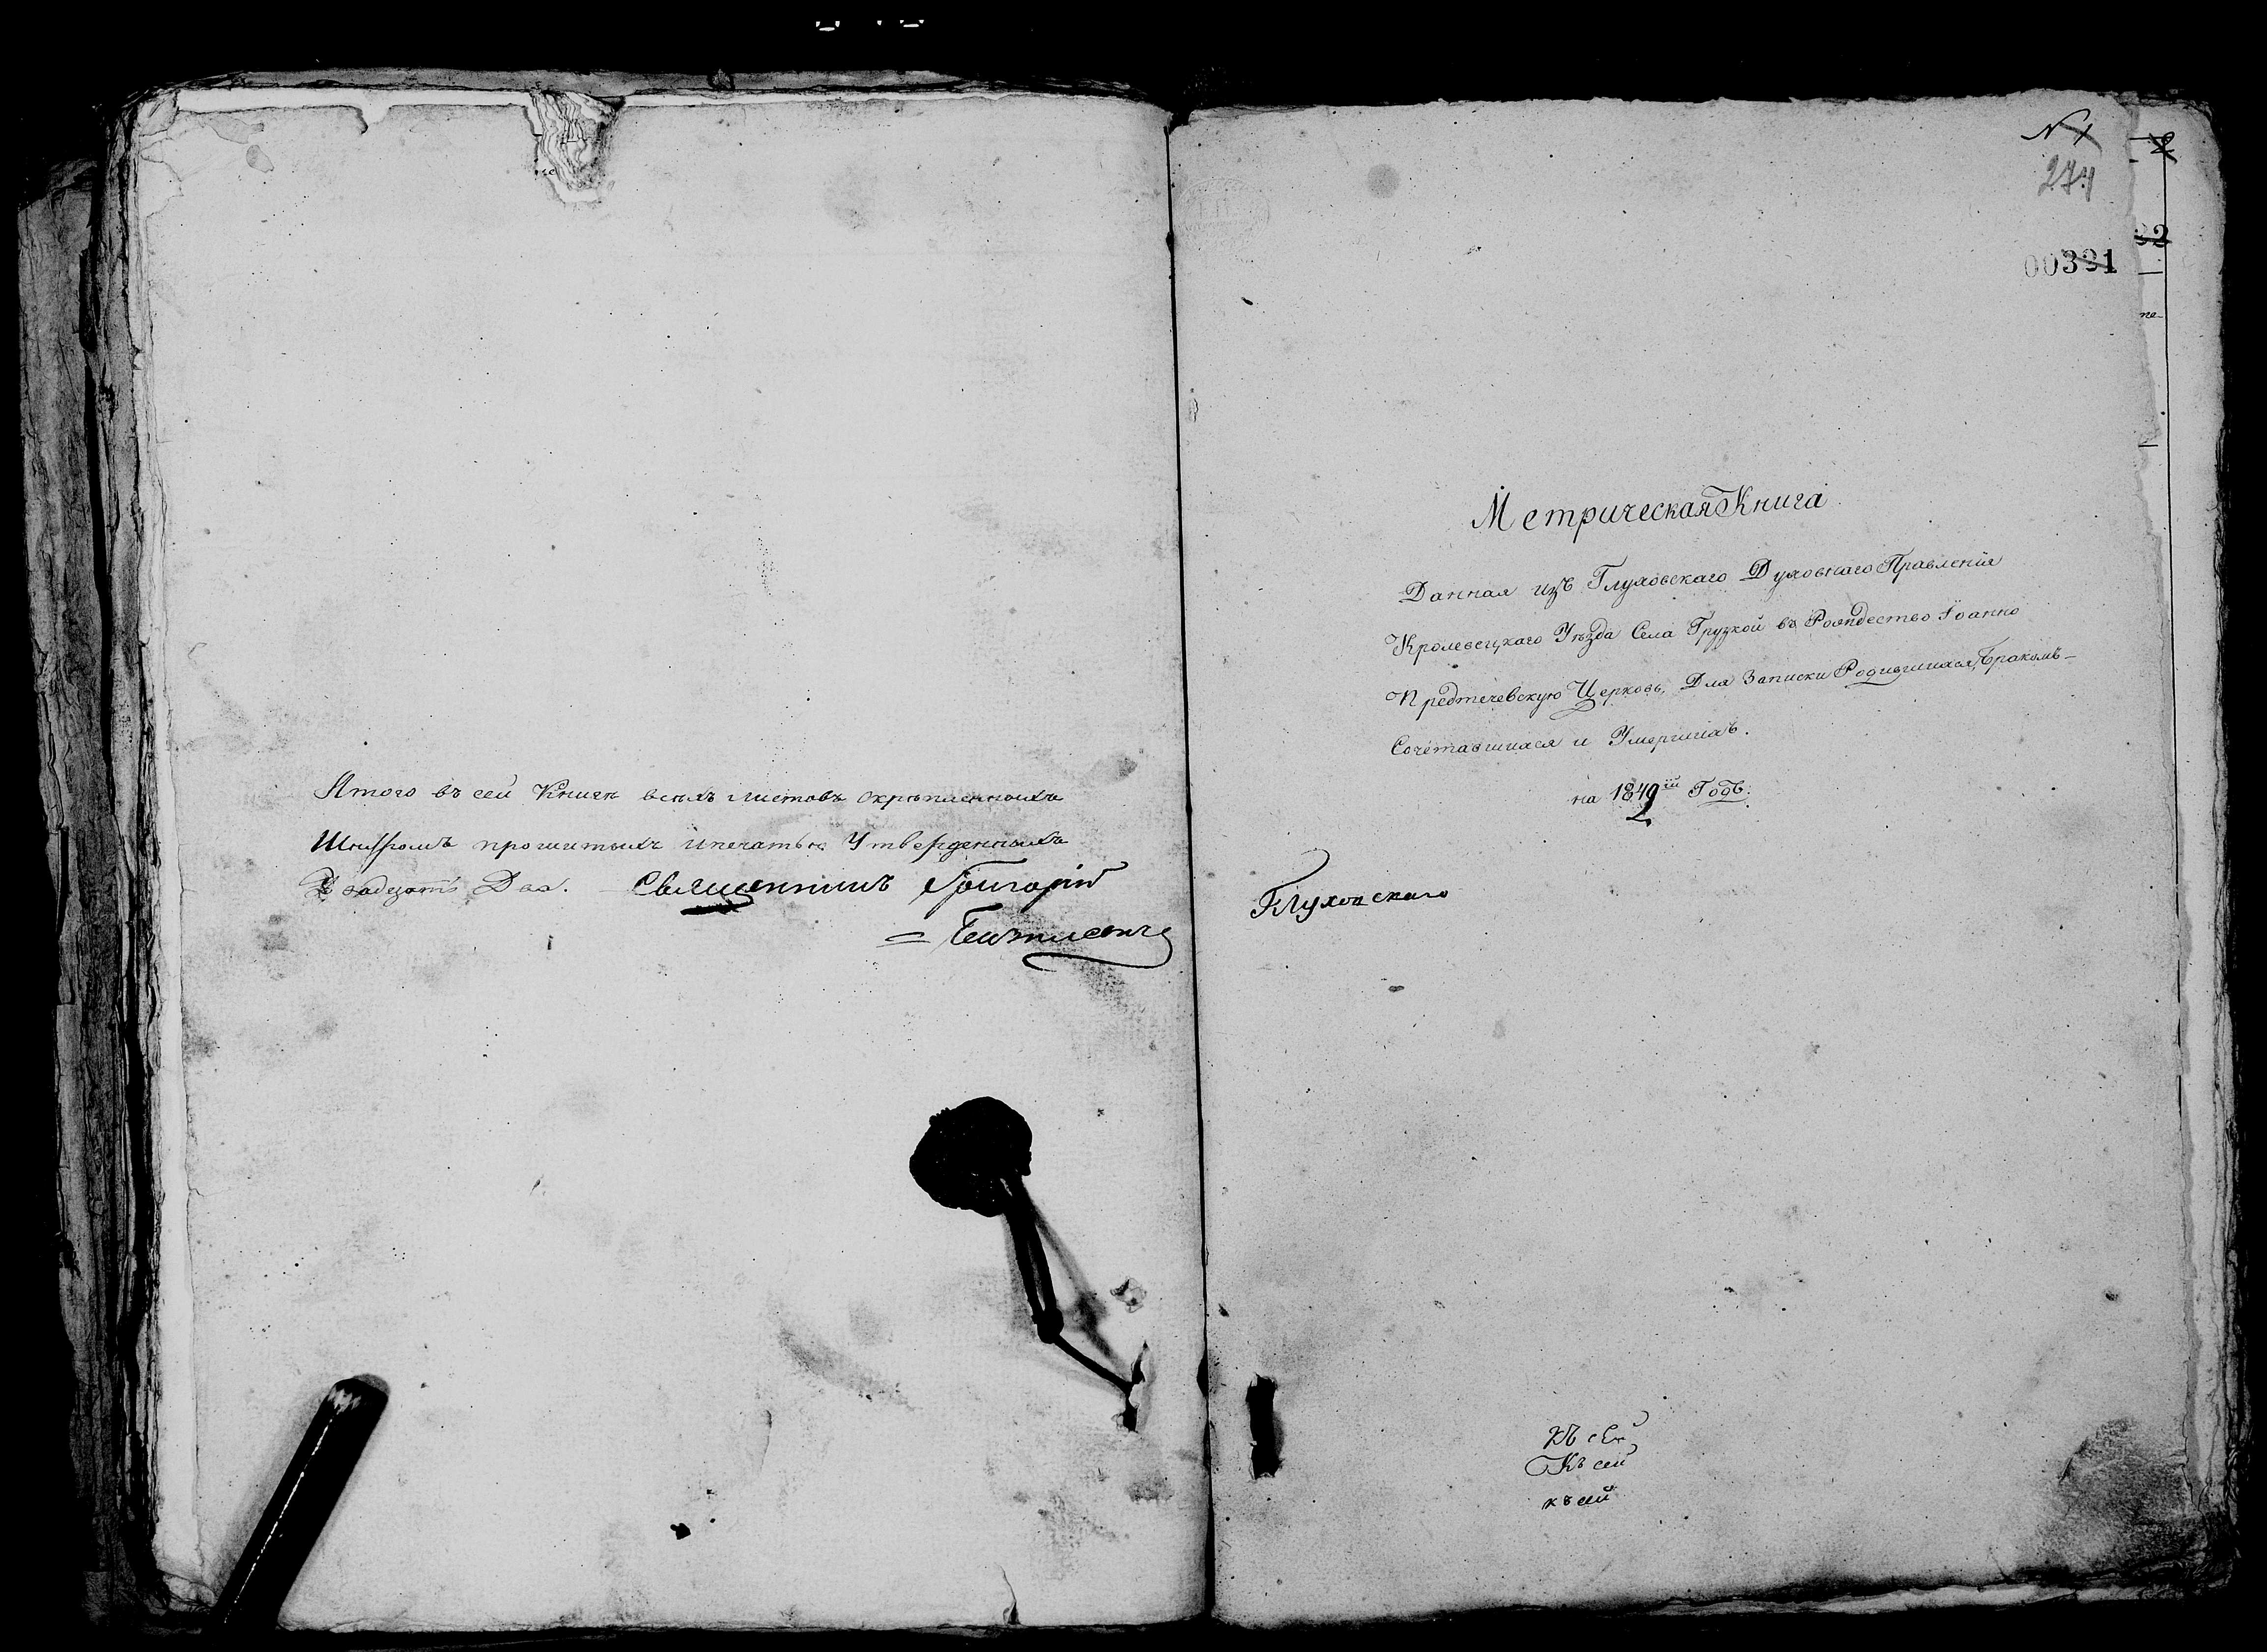 Итого въ сей Книги всѣхъ листовъ скрѣпленныхъ
Шнуромъ прошитыхъ ипечатью Утвержденныхъ
Двадцать Два. Священникъ Григорій
N 1
274
00321
Метрическая Книга
Данная изъ Глуховскаго Духовнаго Правленія
Кролевецкаго Уѣзда Села Грузкой въ Рождество Іоанно
Предтечевскую Церковь, Для Записки Родившихся, Бракомъ-
Сочетавшихся и Умершихъ.
на 1842 ій Годъ.
Глуховскаго
къ сей
Къ сей
къ сей